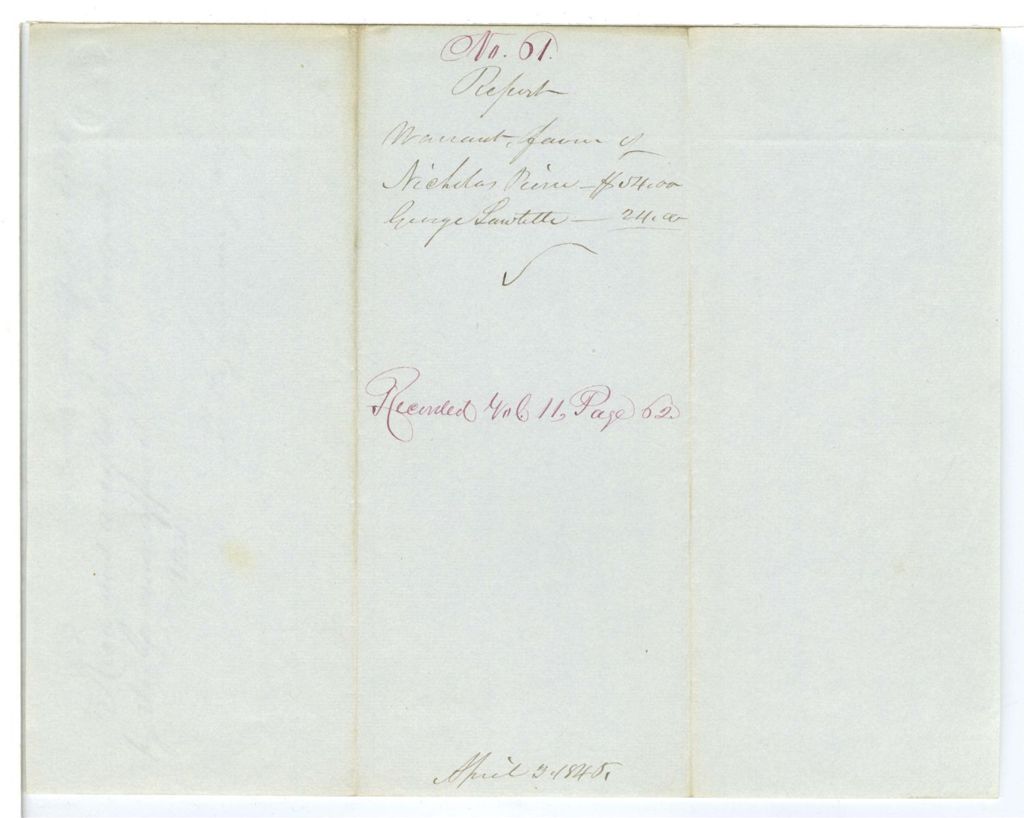 No. 61.
Report
Warrant, favor of
Nicholas Pierre - $54.00
George Lawtette - 24.00
Recorded Vol. 11, Page 62
April 3. 1845.